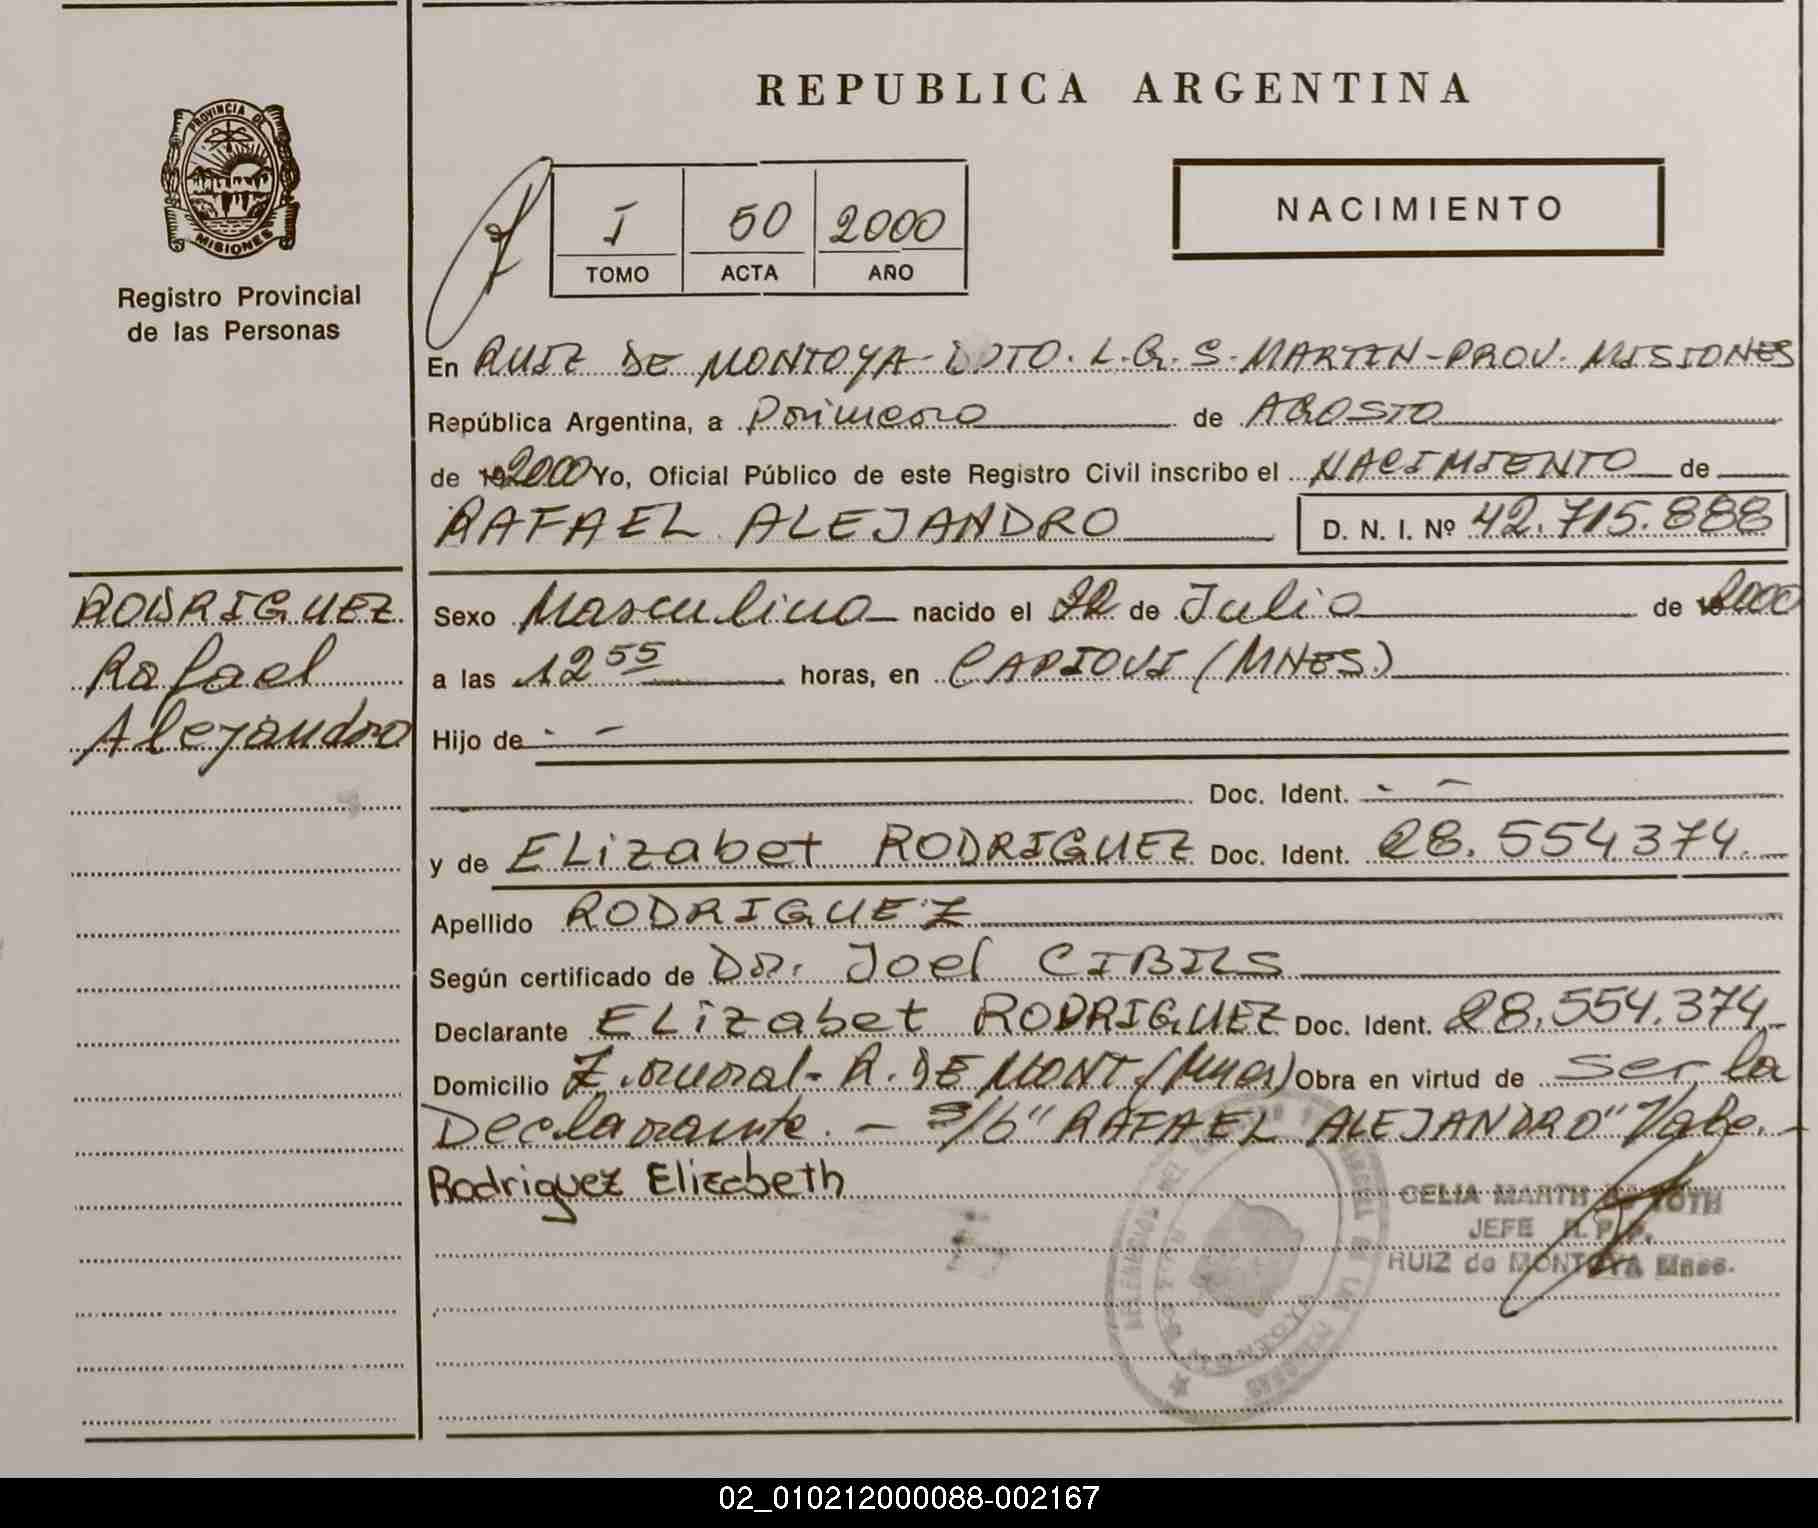 PROVINCIA DE
MISIONES
Registro Provincial
de las Personas
REPUBLICA ARGENTINA
I 50 2000
TOMO ACTA AÑO
NACIMIENTO
En RUIZ DE MONTOYA - DPTO. L.G.S. MARTIN - PROV. MISIONES
República Argentina, a primero de AGOSTO
de 2000 Yo, Oficial Público de este Registro Civil inscribo el NACIMIENTO de
RAFAEL ALEJANDRO D. N. I. Nº 42.715.888
RODRIGUEZ
Rafael
Alejandro
Sexo Masculino nacido el 22 de Julio de 2000
a las 12 55 horas, en CAPIOVI (MNES.)
Hijo de - -
Doc. Ident. - -
y de ELizabet RODRIGUEZ Doc. Ident. 28.554.374.
Apellido RODRIGUEZ
Según certificado de Dr. Joel CIBILS
Declarante ELizabet RODRIGUEZ Doc. Ident. 28.554.374.-
Domicilio Z. rural - R. DE MONT (Mnes) Obra en virtud de ser la
Declarante. - S/b "RAFAEL ALEJANDRO" Vale. -
Rodriguez Elizabeth
CELIA MARTH TOTH
JEFE R.P.P.
RUIZ de MONTOYA Mnes.
02_010212000088-002167